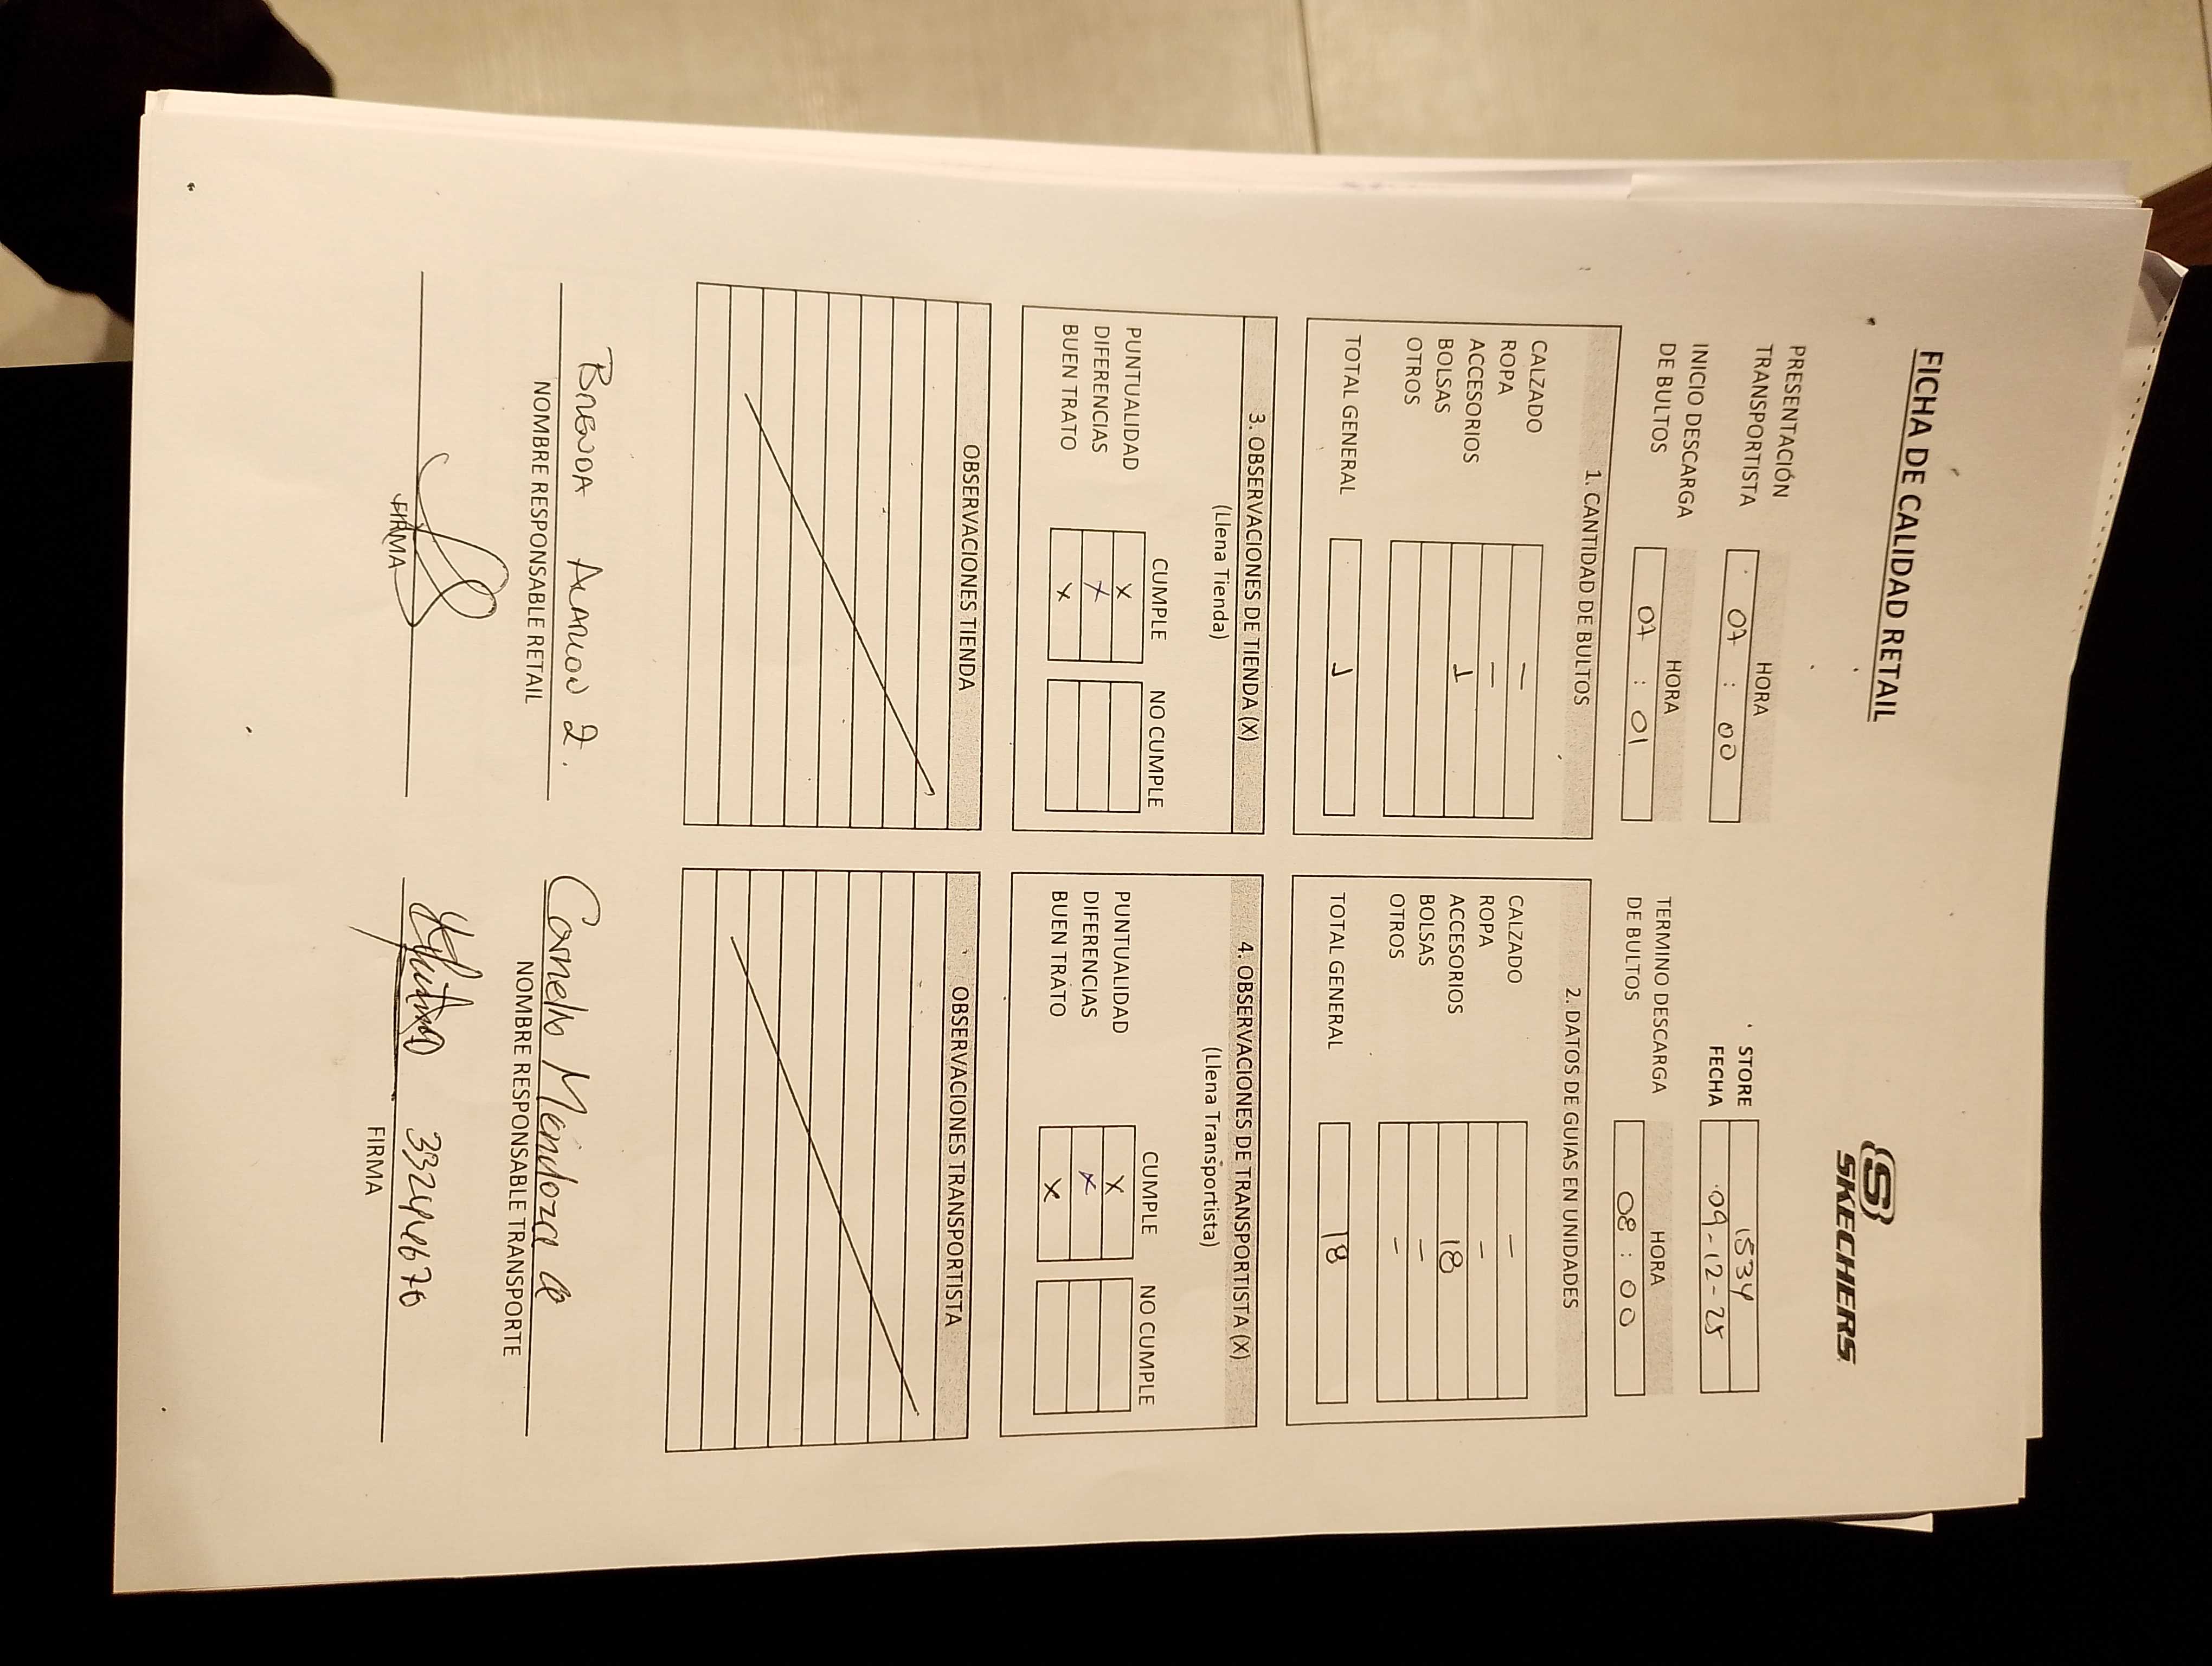 FICHA DE CALIDAD RETAIL
SKECHERS
STORE 1534
FECHA 09-12-25
PRESENTACIÓN
TRANSPORTISTA
HORA
07 : 00
INICIO DESCARGA
DE BULTOS
HORA
07 : 01
TERMINO DESCARGA
DE BULTOS
HORA
08 : 00
1. CANTIDAD DE BULTOS
CALZADO –
ROPA –
ACCESORIOS 1
BOLSAS
OTROS
TOTAL GENERAL 1
2. DATOS DE GUIAS EN UNIDADES
CALZADO –
ROPA –
ACCESORIOS 18
BOLSAS –
OTROS –
TOTAL GENERAL 18
3. OBSERVACIONES DE TIENDA (X)
(Llena Tienda)
CUMPLE NO CUMPLE
PUNTUALIDAD X
DIFERENCIAS X
BUEN TRATO X
4. OBSERVACIONES DE TRANSPORTISTA (X)
(Llena Transportista)
CUMPLE NO CUMPLE
PUNTUALIDAD X
DIFERENCIAS X
BUEN TRATO X
OBSERVACIONES TIENDA
OBSERVACIONES TRANSPORTISTA
BRENDA ALARCON Z.
NOMBRE RESPONSABLE RETAIL
FIRMA
Mendoza
NOMBRE RESPONSABLE TRANSPORTE
FIRMA